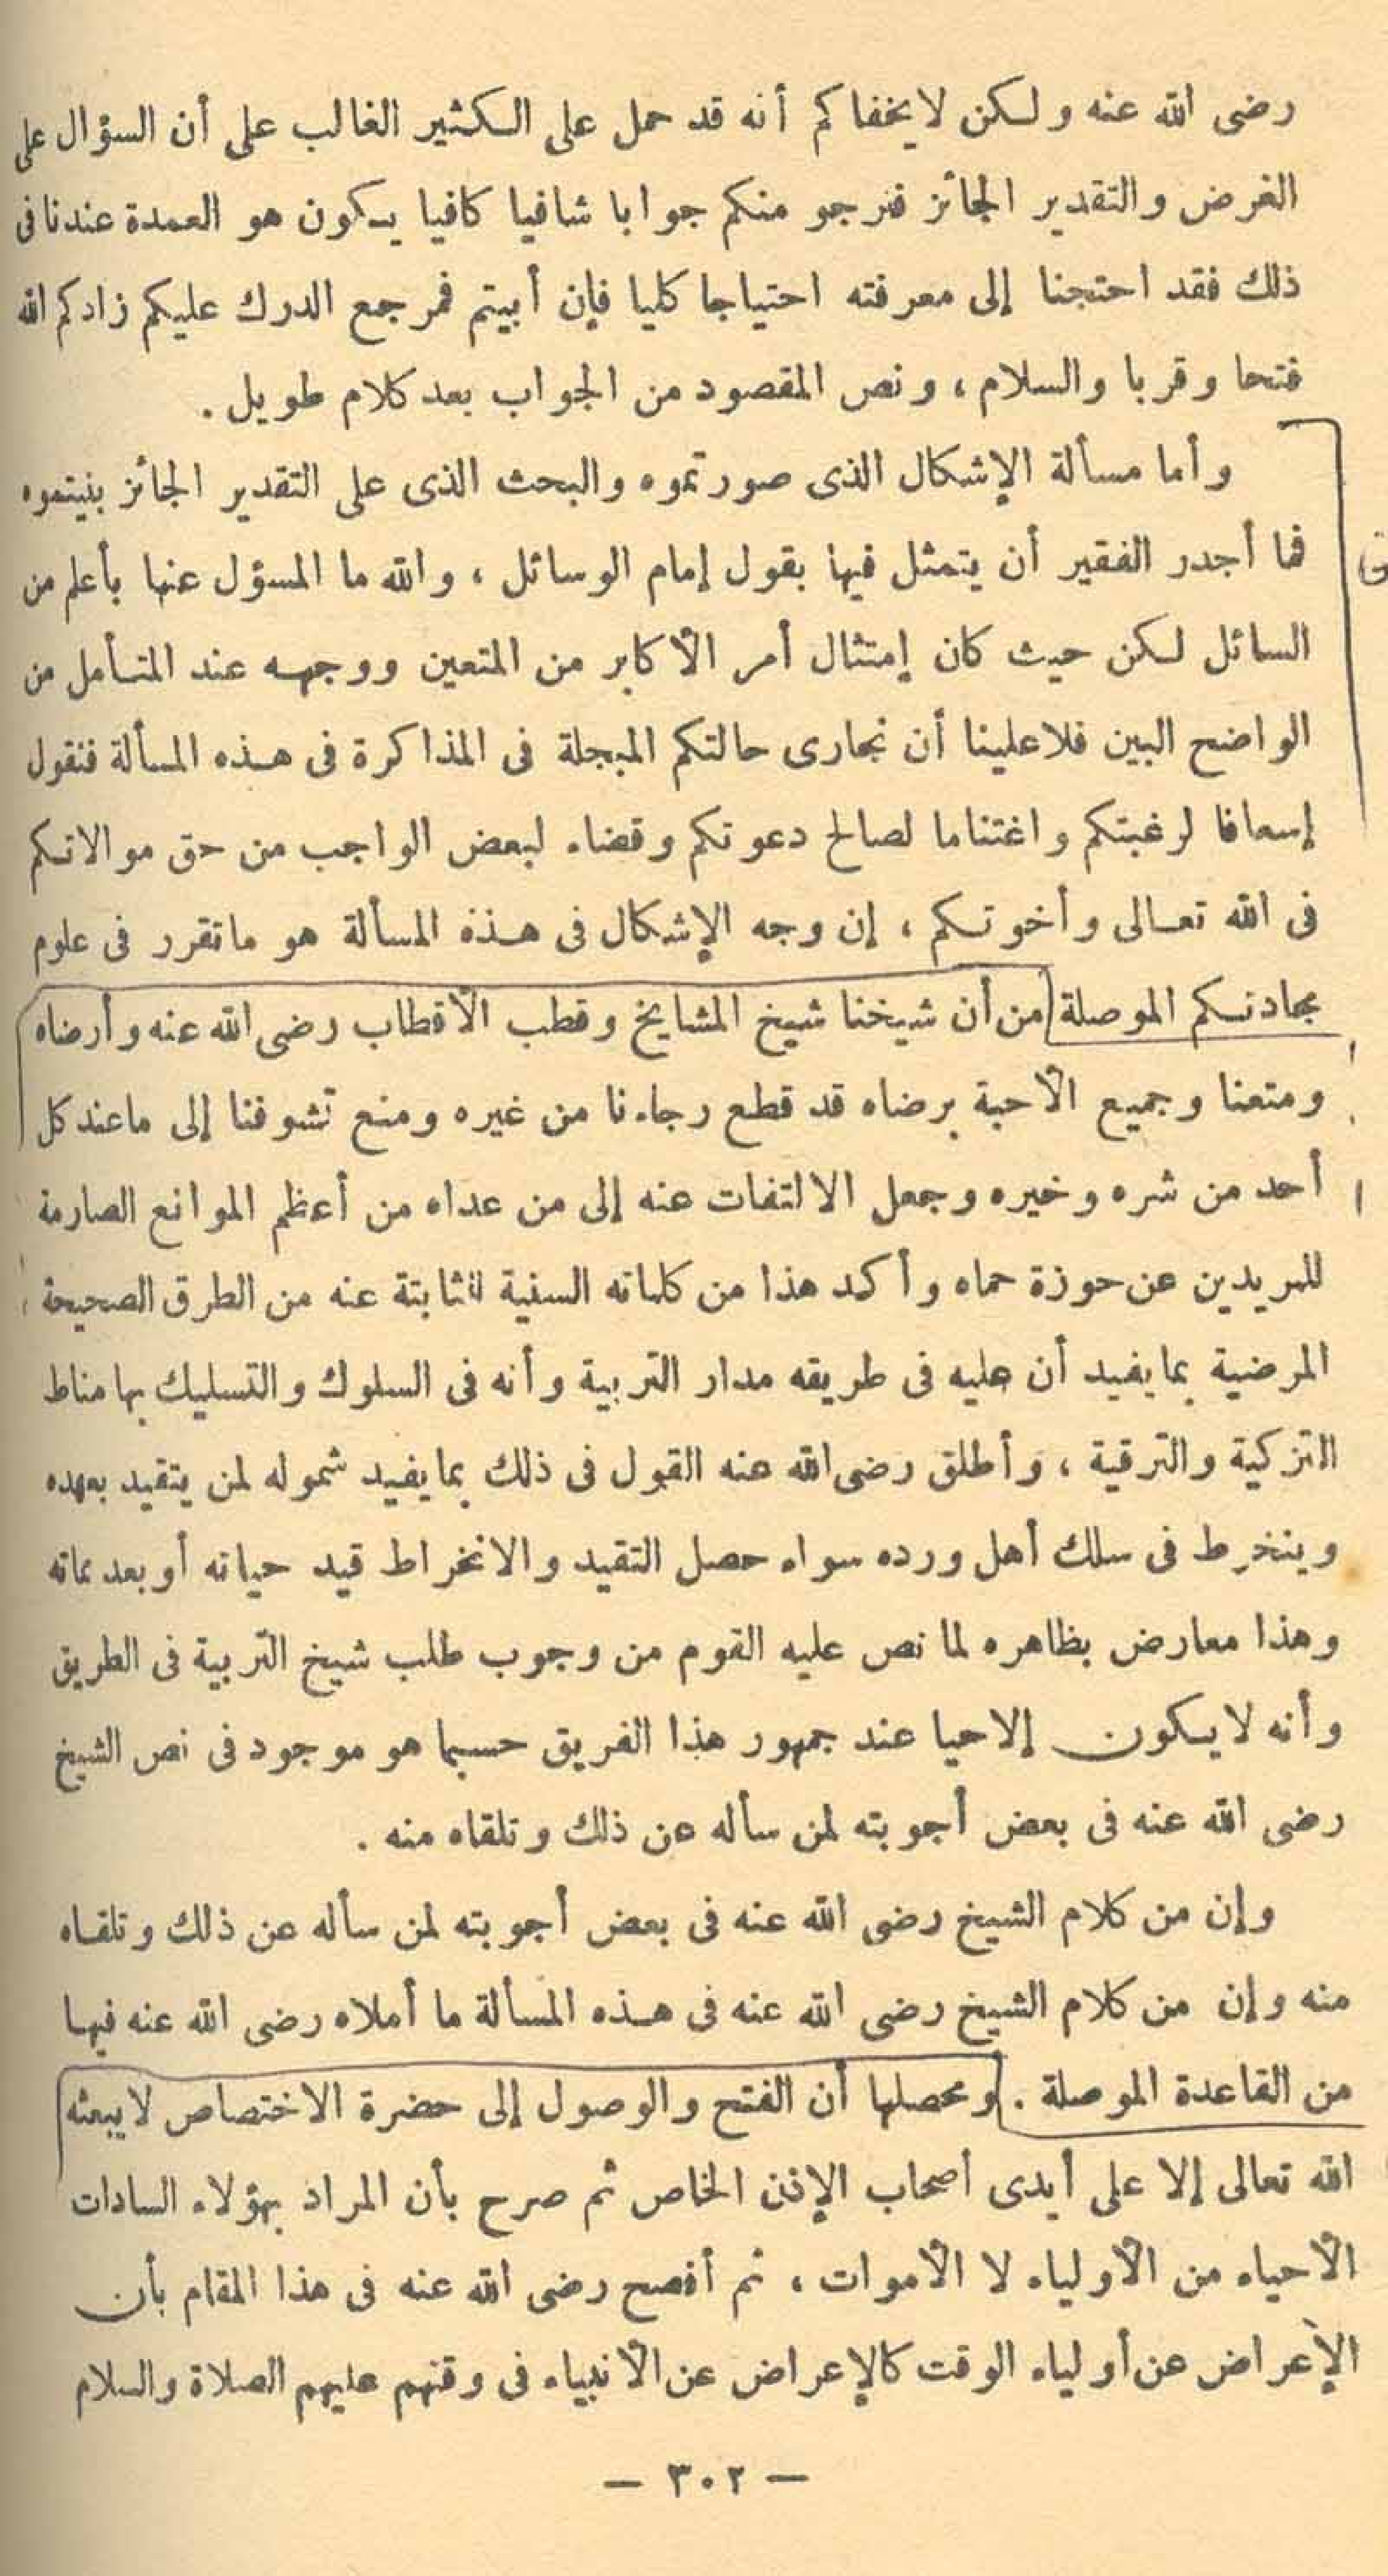 رضى الله عنه ولكن لا يخفاكم أنه قد حمل على الكثير الغالب على أن السؤال على
الفرض والتقدير الجائز فنرجو منكم جوابا شافيا كافيا يكون هو العمدة عندنا فى
ذلك فقد احتجنا إلى معرفته احتياجا كليا فإن أبيتم فمرجع الدرك عليكم زادكم الله
فتحا وقربا والسلام ، ونص المقصود من الجواب بعد كلام طويل .
وأما مسألة الإشكال الذى صورتموه والبحث الذى على التقدير الجائز بنيتموه
فما أجدر الفقير أن يتمثل فيها بقول إمام الوسائل ، والله ما المسؤل عنها بأعلم من
السائل لكن حيث كان إمتثال أمر الأكابر من المتعين ووجهه عند المتأمل من
الواضح البين فلا علينا أن نجارى حالتكم المبجلة فى المذاكرة فى هذه المسألة فنقول
إسعافا لرغبتكم واغتناما لصالح دعوتكم وقضاء لبعض الواجب من حق موالاتكم
فى الله تعالى وأخوتكم ، إن وجه الإشكال فى هذه المسألة هو ما تقرر فى علوم
مجادتكم الموصلة من أن شيخنا شيخ المشايخ وقطب الأقطاب رضى الله عنه وأرضاه
ومتعنا وجميع الأحبة برضاه قد قطع رجاءنا من غيره ومنع تشوفنا إلى ما عند كل
أحد من شره وخيره وجعل الالتفات عنه إلى من عداه من أعظم الموانع الصارمة
للمريدين عن حوزة حماه وأكد هذا من كلماته السنية الثابتة عنه من الطرق الصحيحة
المرضية بما يفيد أن عليه فى طريقه مدار التربية وأنه فى السلوك والتسليك بها مناط
التزكية والترقية ، وأطلق رضى الله عنه القول فى ذلك بما يفيد شموله لمن يتقيد بعهده
وينخرط فى سلك أهل ورده سواء حصل التقيد والانخراط قيد حياته أو بعد مماته
وهذا معارض بظاهره لما نص عليه القوم من وجوب طلب شيخ التربية فى الطريق
وأنه لا يكون إلا حيا عند جمهور هذا الفريق حسبما هو موجود فى نص الشيخ
رضى الله عنه فى بعض أجوبته لمن سأله عن ذلك وتلقاه منه .
وإن من كلام الشيخ رضى الله عنه فى بعض أجوبته لمن سأله عن ذلك وتلقاه
منه وإن من كلام الشيخ رضى الله عنه فى هذه المسألة ما أملاه رضى الله عنه فيها
من القاعدة الموصلة . ومحصلها أن الفتح والوصول إلى حضرة الاختصاص لا يبعثه
الله تعالى إلا على أيدى أصحاب الإذن الخاص ثم صرح بأن المراد بهؤلاء السادات
الأحياء من الأولياء لا الأموات ، ثم أفصح رضى الله عنه فى هذا المقام بأن
الإعراض عن أولياء الوقت كالإعراض عن الأنبياء فى وقتهم عليهم الصلاة والسلام
— ٣٠٢ —